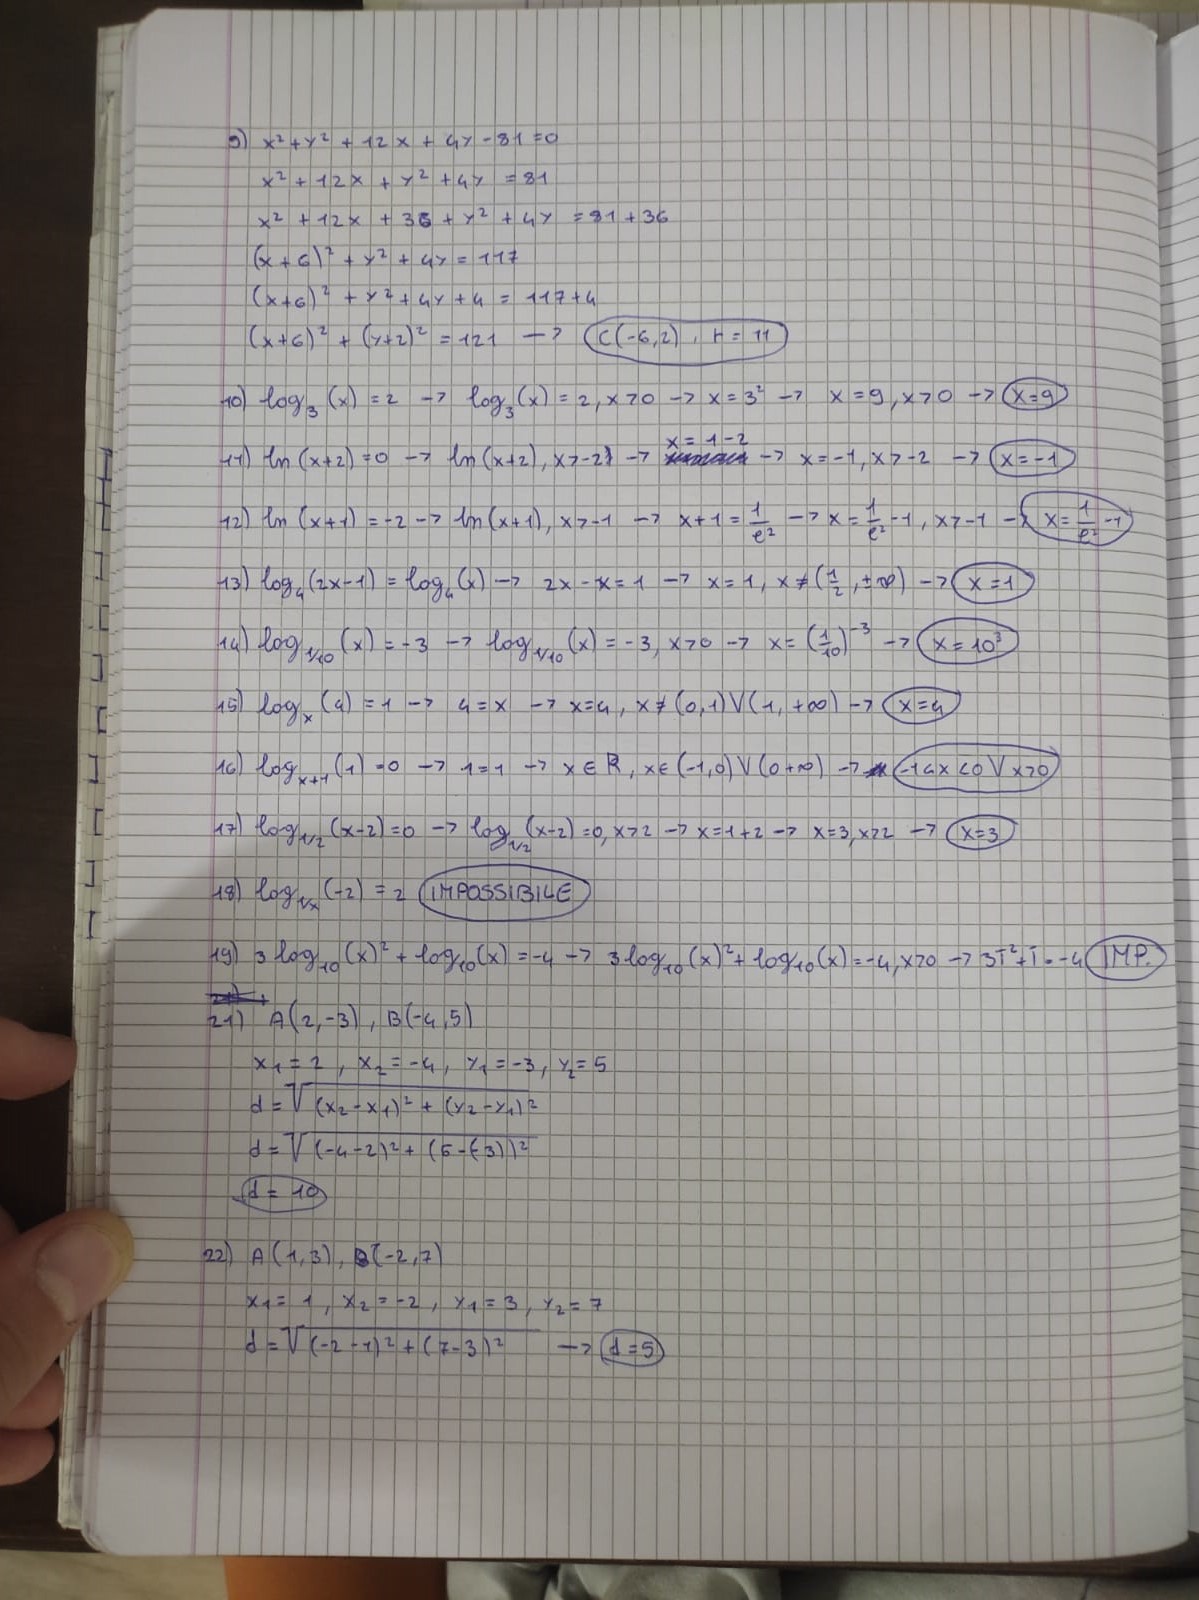 9) x² + y² + 12x + 4y - 81 = 0
x² + 12x + y² + 4y = 81
x² + 12x + 36 + y² + 4y = 81 + 36
(x+6)² + y² + 4y = 117
(x+6)² + y² + 4y + 4 = 117+4
(x+6)² + (y+2)² = 121 → C(-6,2), r = 11
10) log₃(x) = 2 → log₃(x) = 2, x>0 → x = 3² → x = 9, x>0 → x=9
11) ln(x+2)=0 → ln(x+2), x>-2 → x = 1-2 → x=-1, x>-2 → x=-1
12) ln(x+1) = -2 → ln(x+1), x>-1 → x+1 = 1/e² → x = 1/e² -1, x>-1 → x = 1/e² -1
13) log₄(2x-1) = log₄(x) → 2x - x = 1 → x = 1, x≠(1/2, ±∞) → x=1
14) log₁/₁₀(x) = -3 → log₁/₁₀(x) = -3, x>0 → x = (1/10)⁻³ → x = 10³
15) logₓ(4) = 1 → 4 = x → x=4, x≠(0,1)V(1,+∞) → x=4
16) logₓ₊₁(1)=0 → 1=1 → x∈R, x∈(-1,0)V(0+∞) → -1<x<0 V x>0
17) log₁/₂(x-2)=0 → log₁/₂(x-2)=0, x>2 → x=1+2 → x=3, x>2 → x=3
18) log₁/ₓ(-2) = 2 IMPOSSIBILE
19) 3log₁₀(x)² + log₁₀(x) = -4 → 3log₁₀(x)² + log₁₀(x) = -4, x>0 → 3T²+T = -4 IMP.
21) A(2,-3), B(-4,5)
x₁ = 2, x₂ = -4, y₁ = -3, y₂ = 5
d = √(x₂-x₁)² + (y₂-y₁)²
d = √(-4-2)² + (5-(-3))²
d = 10
22) A(1,3), B(-2,7)
x₁ = 1, x₂ = -2, y₁ = 3, y₂ = 7
d = √(-2-1)² + (7-3)² → d=5